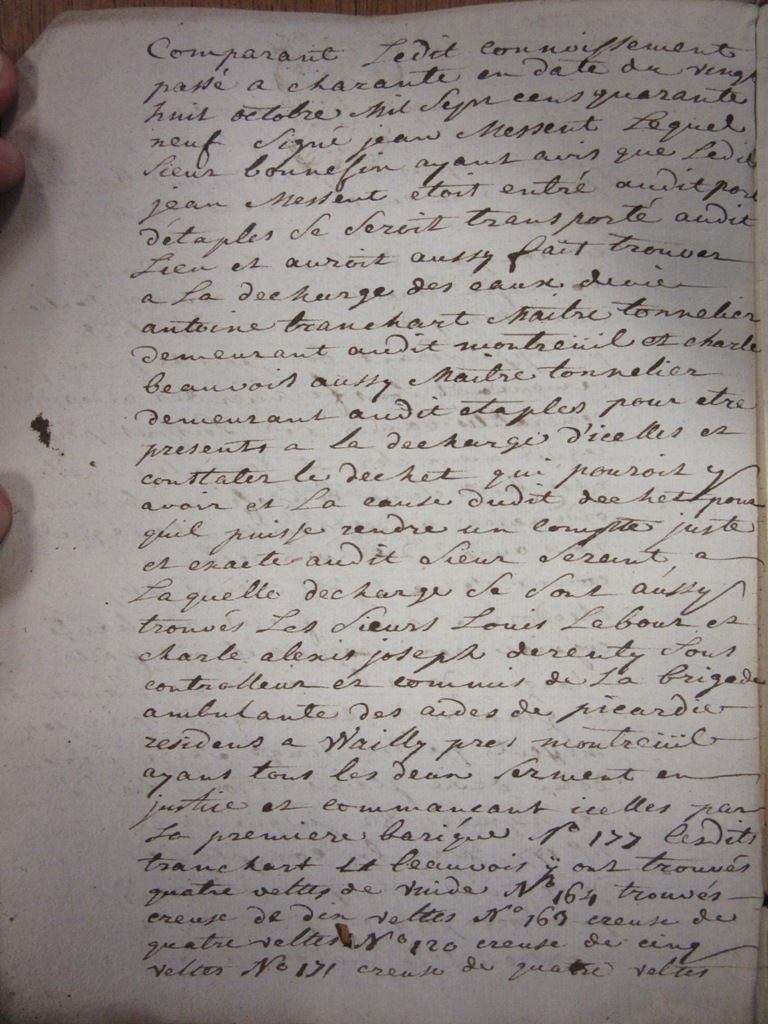 Comparant Ledit connoissement
passé a charante en date du vingt
huit octobre Mil Sept cens quarante
neuf Signé jean Messent Lequel
Sieur bonnefin ayant avis que Ledit
jean Messent etoit entré audit port
détaples Se Seroit transporté audit
Lieu et auroit aussy fait trouver
a La decharge des eaux devie
antoine tranchart Maitre tonnelier
demeurant audit montreüil et charle
beauvois aussy Maitre tonnelier
demeurant audit etaples pour etre
presents a La decharge d'icelles et
constater le dechet qui pouroit y
avoir et La cause dudit dechet pour
quil puisse rendre un compte juste
et exacte audit Sieur a
Laquelle decharge Se Sont aussy
trouvés Les Sieurs Louis Lebout et
charle alexis joseph derenty Sous
controlleur et commis de La brigade
ambulante des aides de picardie
residens a Wailly pres montreüil
ayans tous les deux Serment en
justice et commancant icelles par
La premiere barique N° 177 Lesdits
tranchart Et beauvois y ont trouvés
quatre veltes de vuide N° 164 trouvés
creuse de dix veltes N° 163 creuse de
quatre veltes N° 120 creuse de cinq
veltes N° 171 creuse de quatre veltes